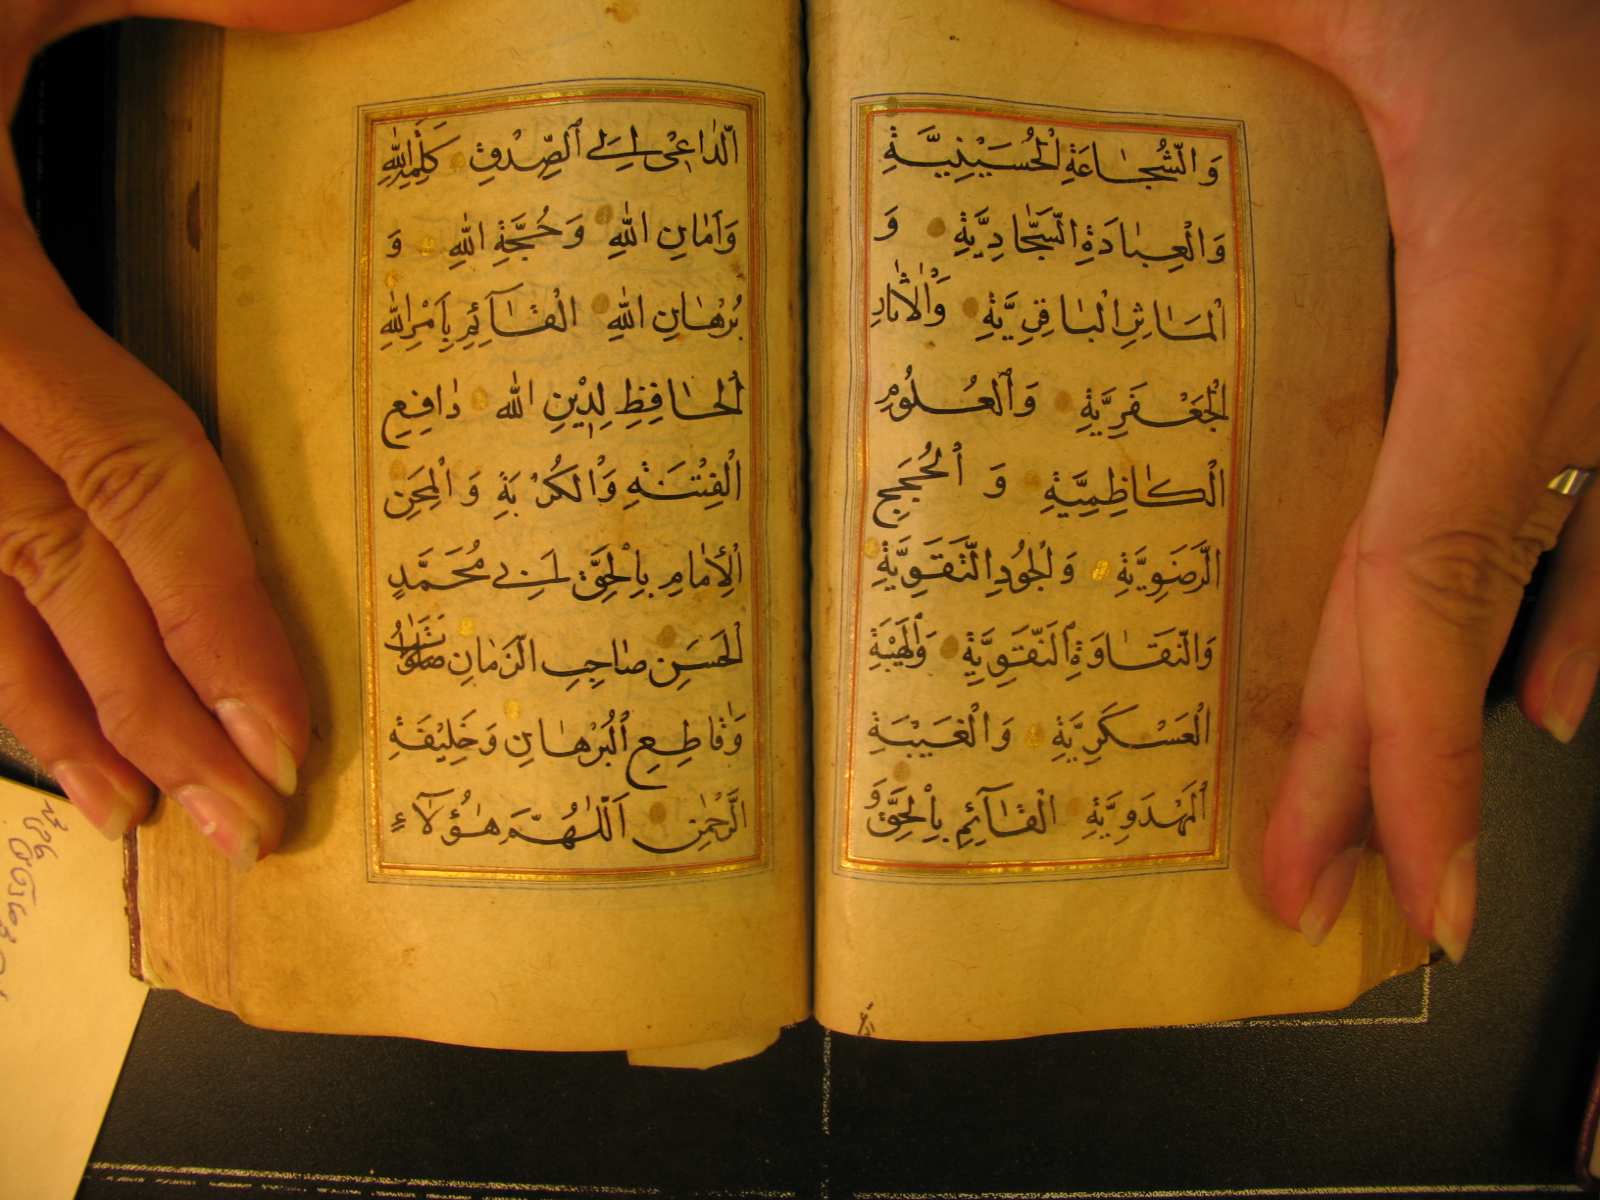 وَ الشُّجَاعَةِ الْحُسَيْنِيَّةِ
وَ الْعِبَادَةِ السَّجَّادِيَّةِ وَ
الْمَاٰثِرِ الْبَاقِرِيَّةِ وَالْاٰثَارِ
الْجَعْفَرِيَّةِ وَ الْعُلُومِ
الْكَاظِمِيَّةِ وَ الْحُجَجِ
الرَّضَوِيَّةِ وَ الْجُودِ التَّقَوِيَّةِ
وَ النَّقَاوَةِ النَّقَوِيَّةِ وَالْهَيْبَةِ
الْعَسْكَرِيَّةِ وَ الْغَيْبَةِ
الْمَهْدَوِيَّةِ الْقَآئِمِ بِالْحَقِّ وَ
الدَّاعِىْ اِلَى الصِّدْقِ كَلِمَةِ اللهِ
وَ اَمَانِ اللهِ وَ حُجَّةِ اللهِ وَ
بُرْهَانِ اللهِ الْقَآئِمِ بِاَمْرِ اللهِ
الْحَافِظِ لِدِيْنِ الله دَافِعِ
الْفِتْنَةِ وَ الْكُرْبَةِ وَ الْمِحَنِ
الْاِمَامِ بِالْحَقِّ اَبِىْ مُحَمَّدٍ
الْحَسَنِ صَاحِبِ الزَّمَانِ
وَ قَاطِعِ الْبُرْهَانِ وَ خَلِيْفَةِ
الرَّحْمٰنِ اَللّٰهُمَّ هٰؤُلَآءِ